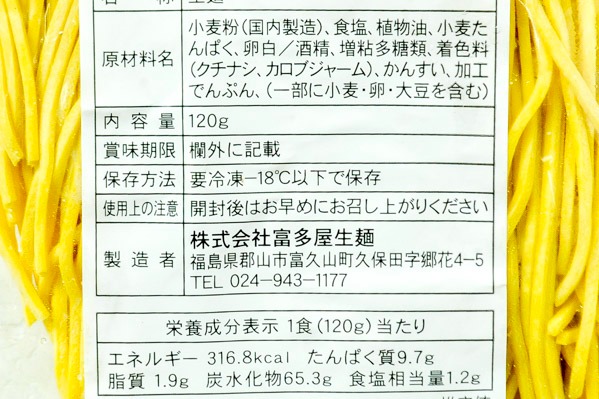 原材料名 小麦粉(国内製造)、食塩、植物油、小麦た
んぱく、卵白/酒精、増粘多糖類、着色料
(クチナシ、カロブジャーム)、かんすい、加工
でんぷん、(一部に小麦・卵・大豆を含む)
内容量 120g
賞味期限 欄外に記載
保存方法 要冷凍-18℃以下で保存
使用上の注意 開封後はお早めにお召し上がりください
製造者 株式会社富多屋生麺
福島県郡山市富久山町久保田字郷花4-5
TEL 024-943-1177
栄養成分表示 1食(120g)当たり
エネルギー 316.8kcal たんぱく質9.7g
脂質 1.9g 炭水化物65.3g 食塩相当量1.2g